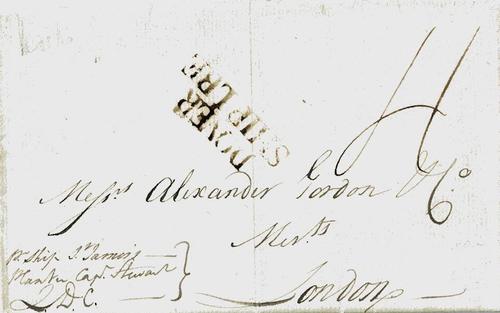 DOVER
SHIP LRE
Messrs Alexander Gordon & Co.
Merts
London
pr. Ship St. James
Planter Capt. Stewart
Q.D.C.